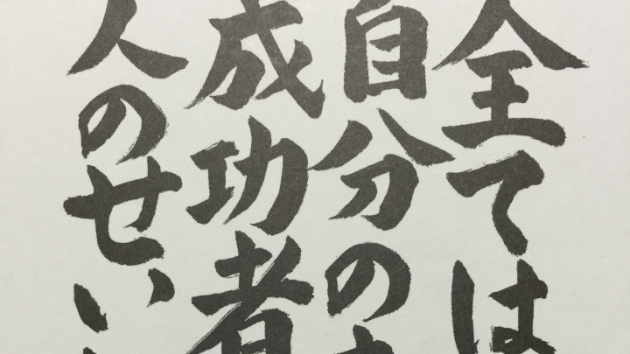 全ては
自分の
成功者
人のせい